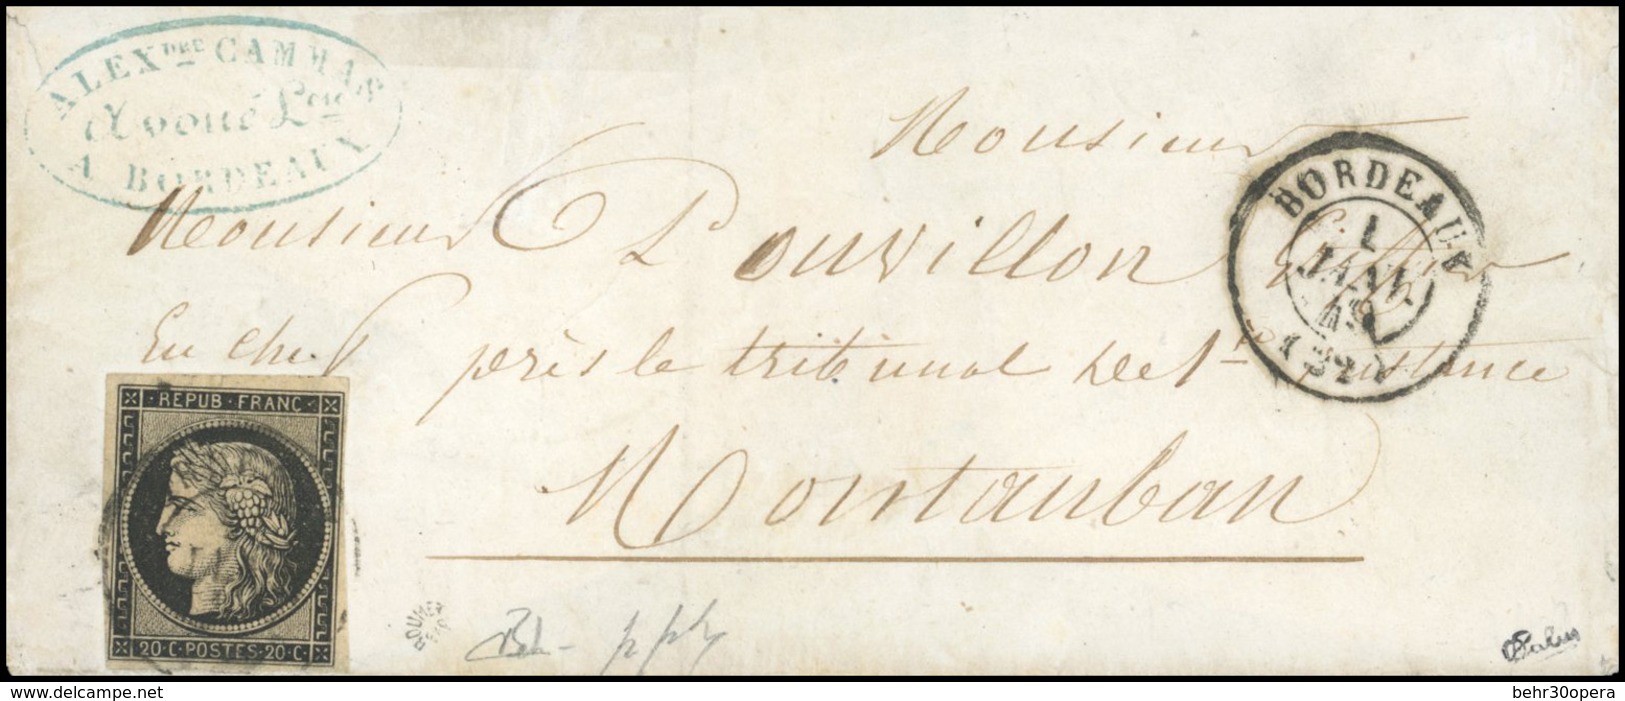 ALEX DRE CAMMAS
Avoué Lcié
A BORDEAUX
Monsieur
Monsieur Pouvillon Greffier
En chef près le tribunal de 1re instance
Montauban
BORDEAUX
1
JANV.
49
(32)
· REPUB · FRANC ·
20 · C · POSTES · 20 · C ·
ROUMET
www.delcampe.net
behr30opera